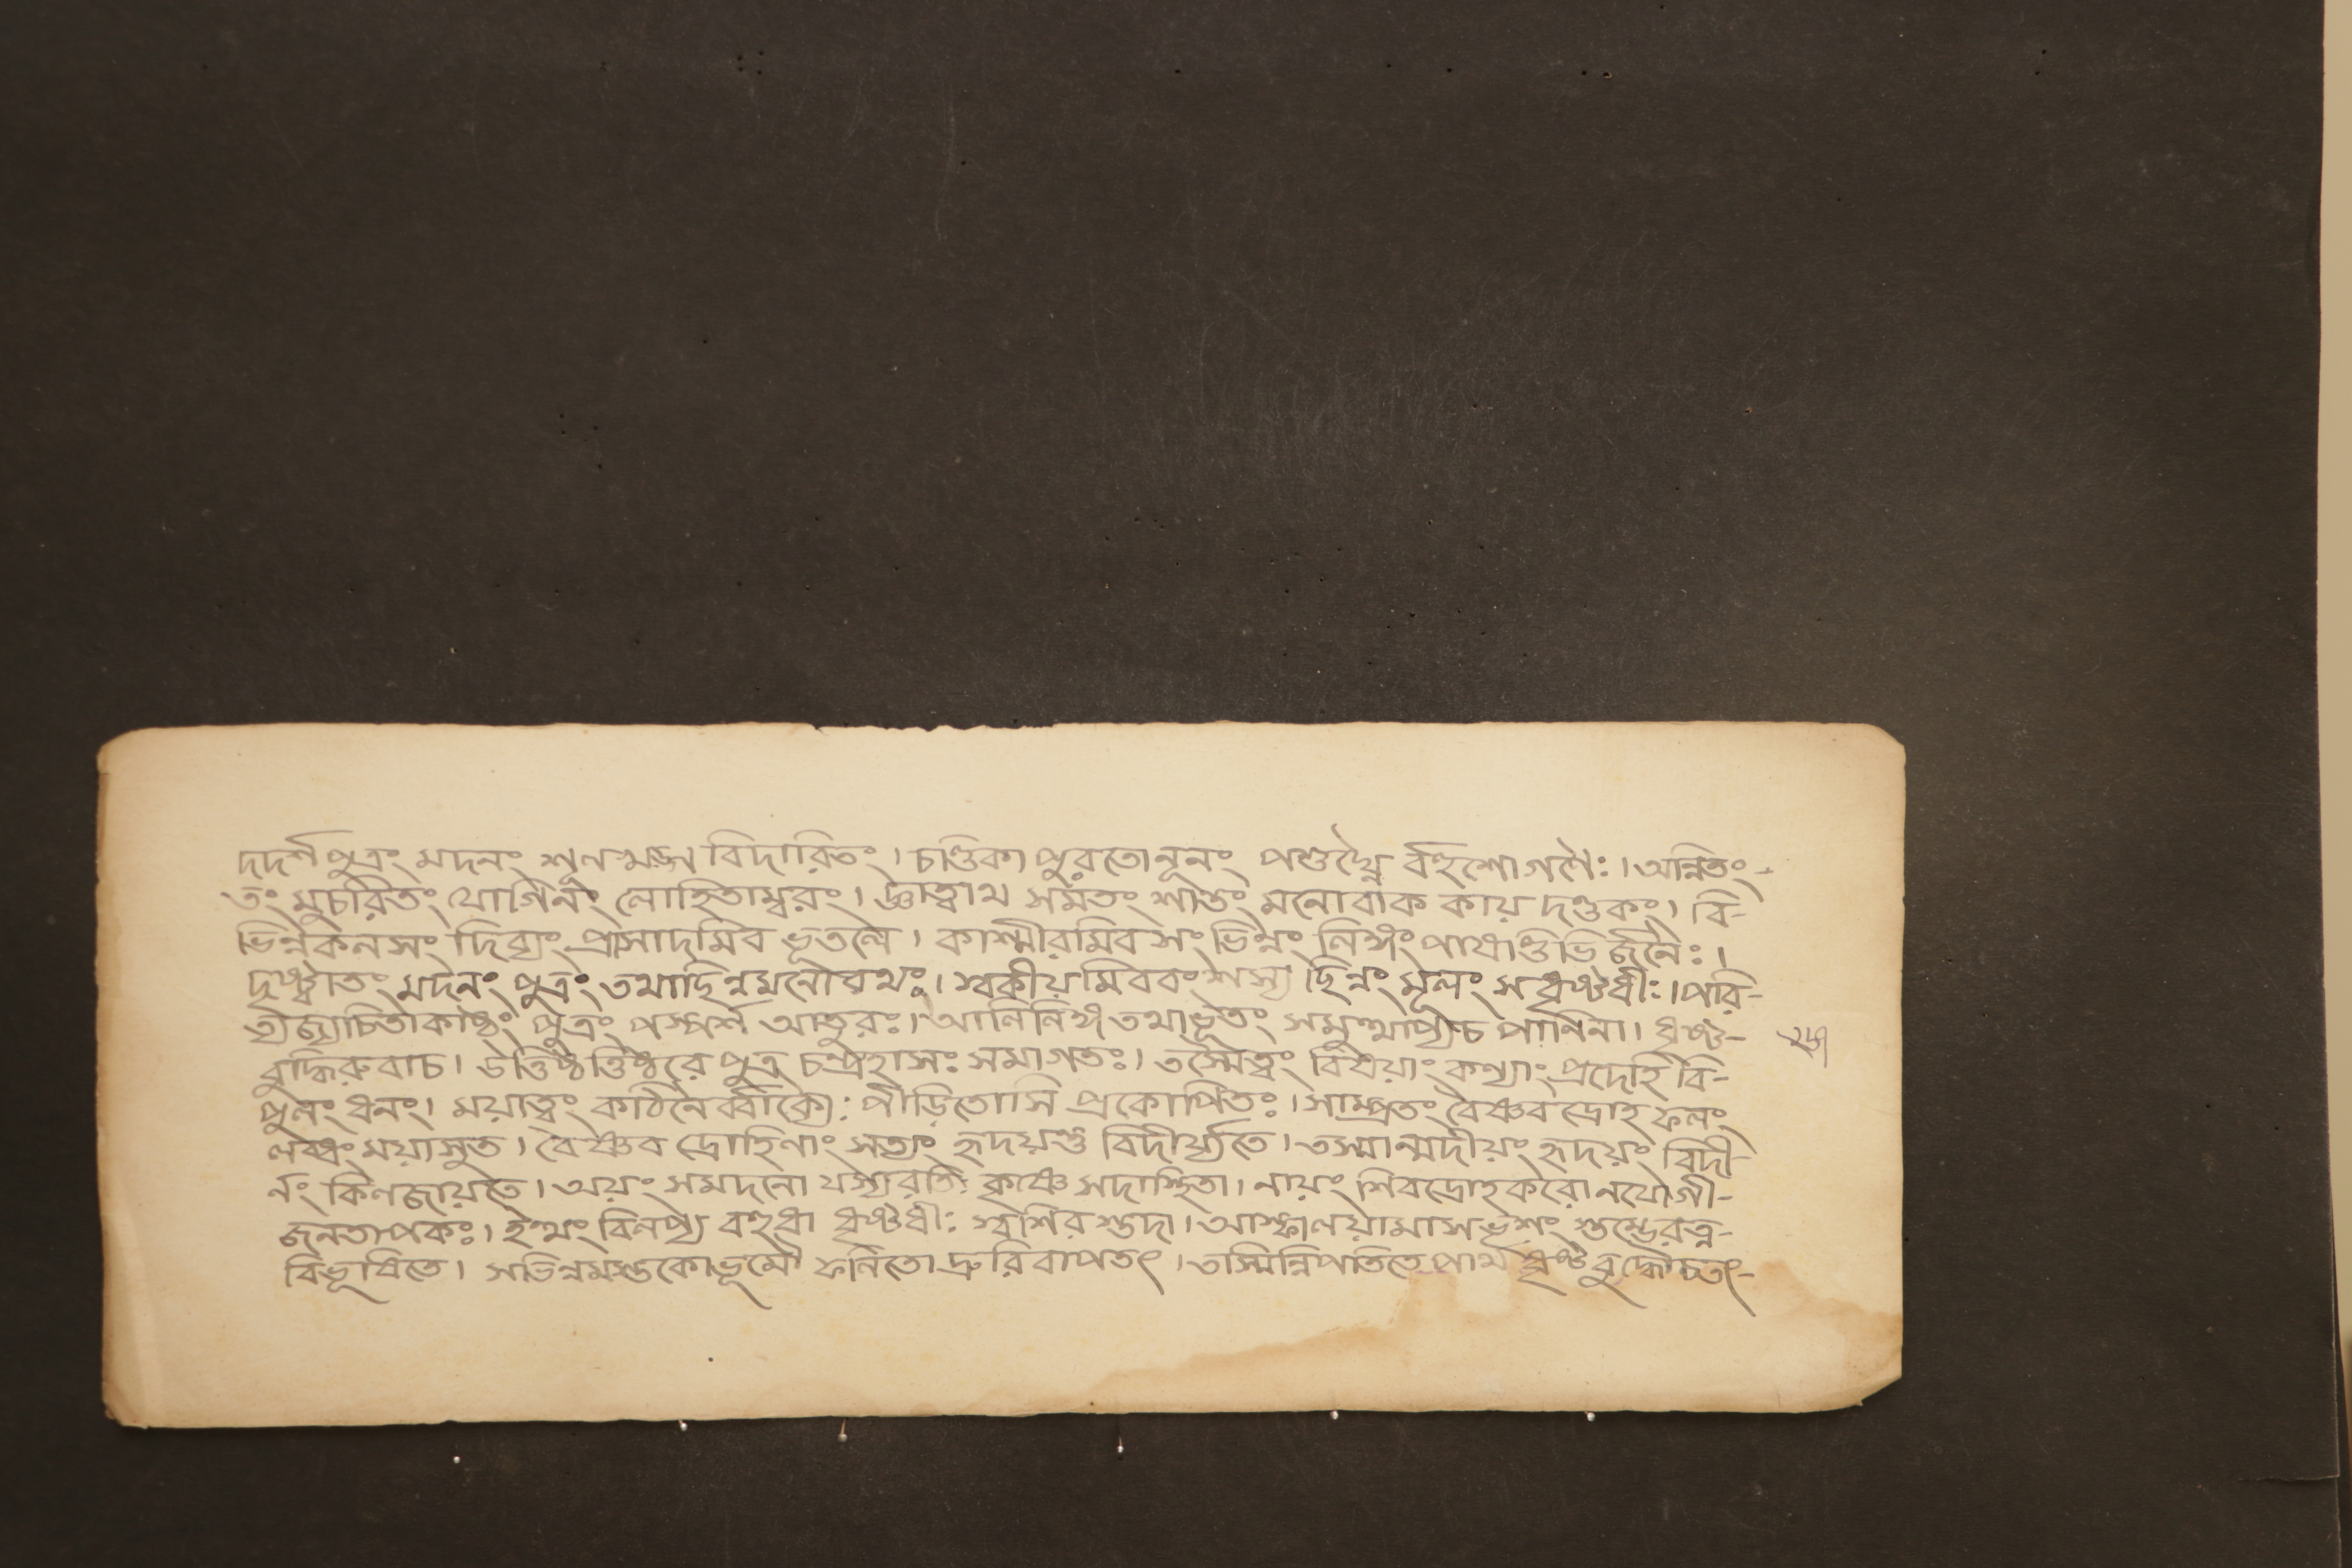 দদর্শ পুত্রং মদনং শূলখড়্গ বিদারিতং। চণ্ডিকা পুরতো নূনং পশুঘ্নৈ র্বহুশোগণৈঃ। অন্বিতং-
তং সুচরিতং যোগিনং লোহিতাম্বরং। জ্ঞাত্বাথ সমতং শান্তং মনোবাক কায় দণ্ডকং। বি-
ভিন্নকলসং দিব্যং প্রাসাদমিব ভূতলে। কাশ্মীরমিব সংভিন্নং লিঙ্গং পাষাণ্ডিভি র্জনৈঃ।
দৃষ্ট্বাতং মদনং পুত্রং তথাছিন্নমনোরথং। স্বকীয়মিব বংশস্য ছিন্নং মূলং স ধৃষ্টধীঃ। পরি-
ত্যজ্যচিতাকাষ্ঠং পুত্রং পস্পর্শ আতুরঃ। আলিলিঙ্গ তথাভূতং সমুত্থাপ্যচ পাণিনা। ধৃষ্ট-
বুদ্ধিরুবাচ। উত্তিষ্ঠত্তিষ্ঠরে পুত্র চন্দ্রহাসঃ সমাগতঃ। তস্মৈত্বং বিষয়াং কন্যাং প্রদেহি বি-
পুলং ধনং। ময়াত্বং কঠিনৈর্ব্বাক্যৈঃ পীড়িতোসি প্রকোপিতঃ। সাম্প্রতং বৈষ্ণবদ্রোহ ফলং
লব্ধং ময়াসুত। বৈষ্ণব দ্রোহিণাং সত্যং হৃদয়ন্তু বিদীর্য্যতে। তস্মান্মদীয়ং হৃদয়ং বিদী-
র্নং কিংনজায়তে। অয়ং সমদনো যস্যরতিঃ কৃষ্ণে সদাস্থিতা। নায়ং শিবদ্রোহকরো নযোগী-
জনতাপকঃ। ইত্থং বিলপ্য বহুধা ধৃষ্টধীঃ স্বশির স্তদা। আস্ফালয়ামাসভৃশং স্তম্ভেরত্ন-
বিভূষিতে। সভিন্নমস্তকোভূমৌ ফলিতো দ্রুরিবাপতৎ। তস্মিন্নিপতিতে পার্থ ধৃষ্টবুদ্ধৌ